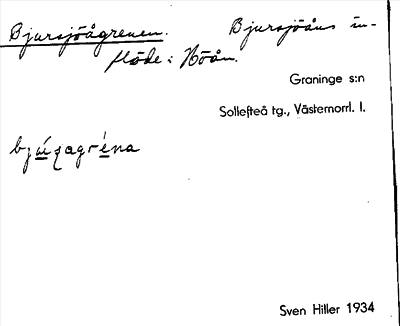 Bjursjöågrenen. Bjursjöåns in-
flöde i Nöån.
Graninge s:n
Sollefteå tg., Västernorrl. l.
Sven Hiller 1934